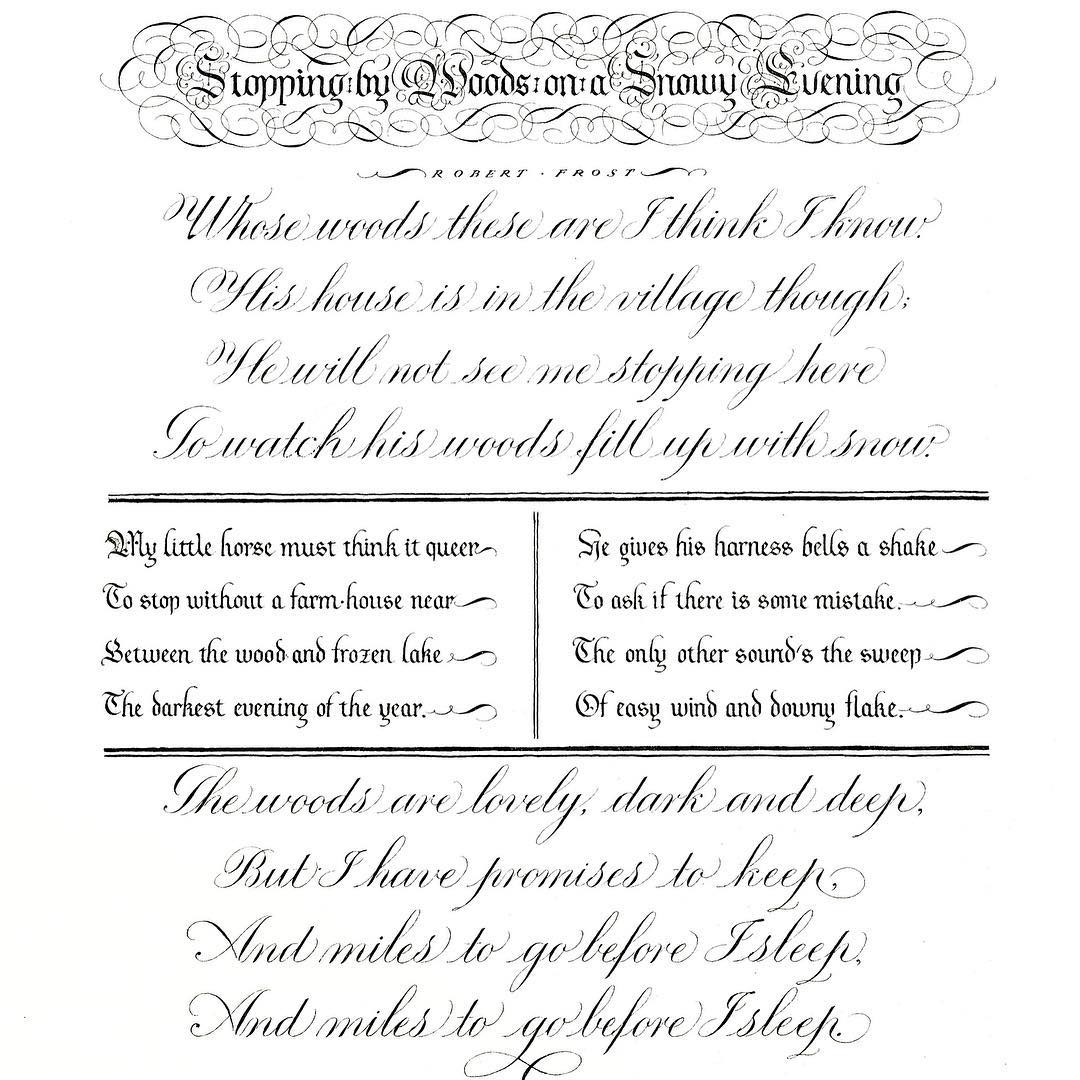 Stopping by Woods on a Snowy Evening
ROBERT · FROST
Whose woods these are I think I know.
His house is in the village though;
He will not see me stopping here
To watch his woods fill up with snow.
My little horse must think it queer
To stop without a farm-house near
Between the wood and frozen lake
The darkest evening of the year.
He gives his harness bells a shake
To ask if there is some mistake.
The only other sound's the sweep
Of easy wind and downy flake.
The woods are lovely, dark and deep,
But I have promises to keep,
And miles to go before I sleep,
And miles to go before I sleep.